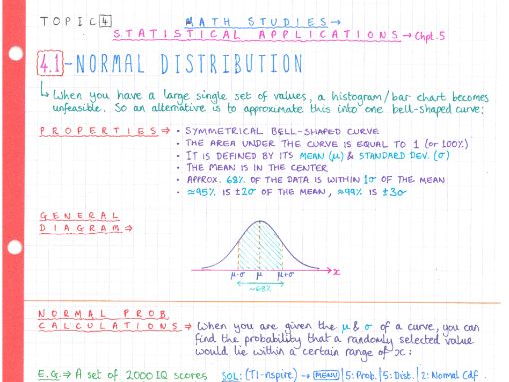 TOPIC 4 MATH STUDIES →
STATISTICAL APPLICATIONS → Chpt. 5
4.1 - NORMAL DISTRIBUTION
↳ When you have a large single set of values, a histogram/bar chart becomes
unfeasible. So an alternative is to approximate this into one bell-shaped curve:
PROPERTIES ⇒ • SYMMETRICAL BELL-SHAPED CURVE
• THE AREA UNDER THE CURVE IS EQUAL TO 1 (or 100%)
• IT IS DEFINED BY ITS MEAN (μ) & STANDARD DEV. (σ)
• THE MEAN IS IN THE CENTER
• APPROX. 68% OF THE DATA IS WITHIN 1σ OF THE MEAN
• ≈95% IS ±2σ OF THE MEAN, ≈99% IS ±3σ
GENERAL
DIAGRAM ⇒
x
μ-σ μ μ+σ
≈68%
NORMAL PROB.
CALCULATIONS ⇒ When you are given the μ & σ of a curve, you can
find the probability that a randomly selected value
would lie within a certain range of x:
E.G. ⇒ A set of 2000 IQ scores SOL: (TI-nspire) → MENU | 5: Prob. | 5: Dist. | 2: Normal Cdf.